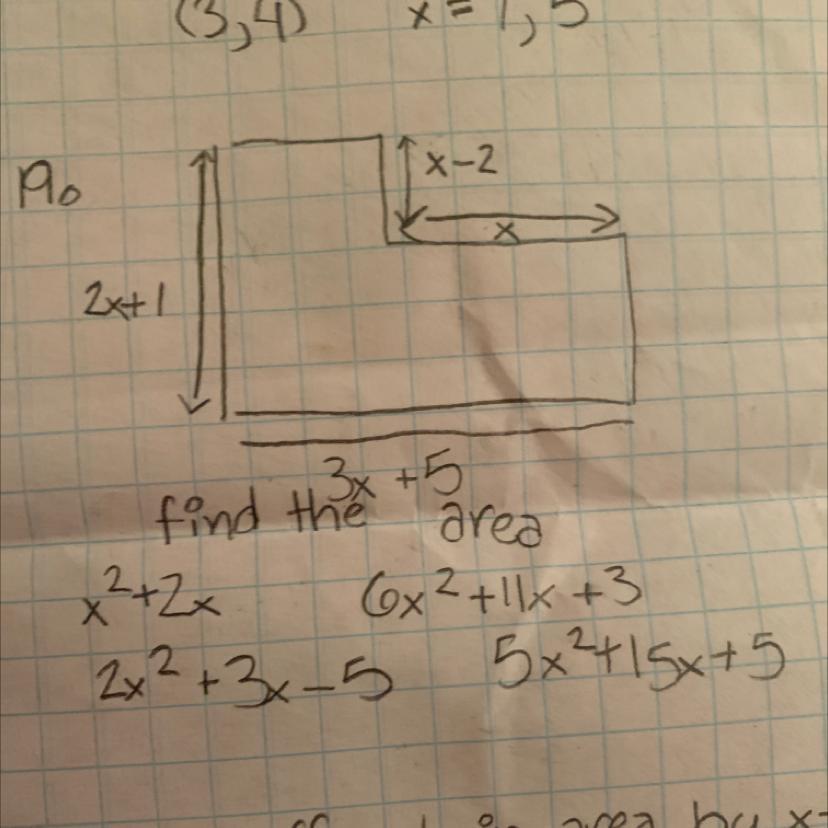 (3,4) x = 1, 5
19.
x-2
x
2x+1
3x + 5
find the area
x²+2x 6x²+11x+3
2x²+3x-5 5x²+15x+5
area by x